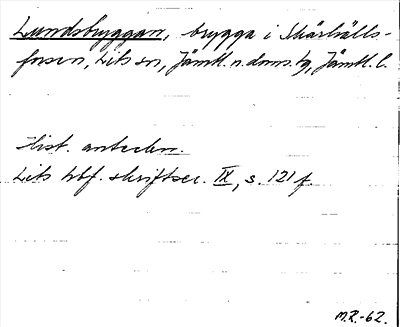 Lundsbryggan, brygga i Skärhålls-
forsen, Lits sn, Jämtl. n. doms. tg, Jämtl. l.
Hist. anteckn.
Lits hbf. skriftser. IX, s. 121 f.
M.R.-62.